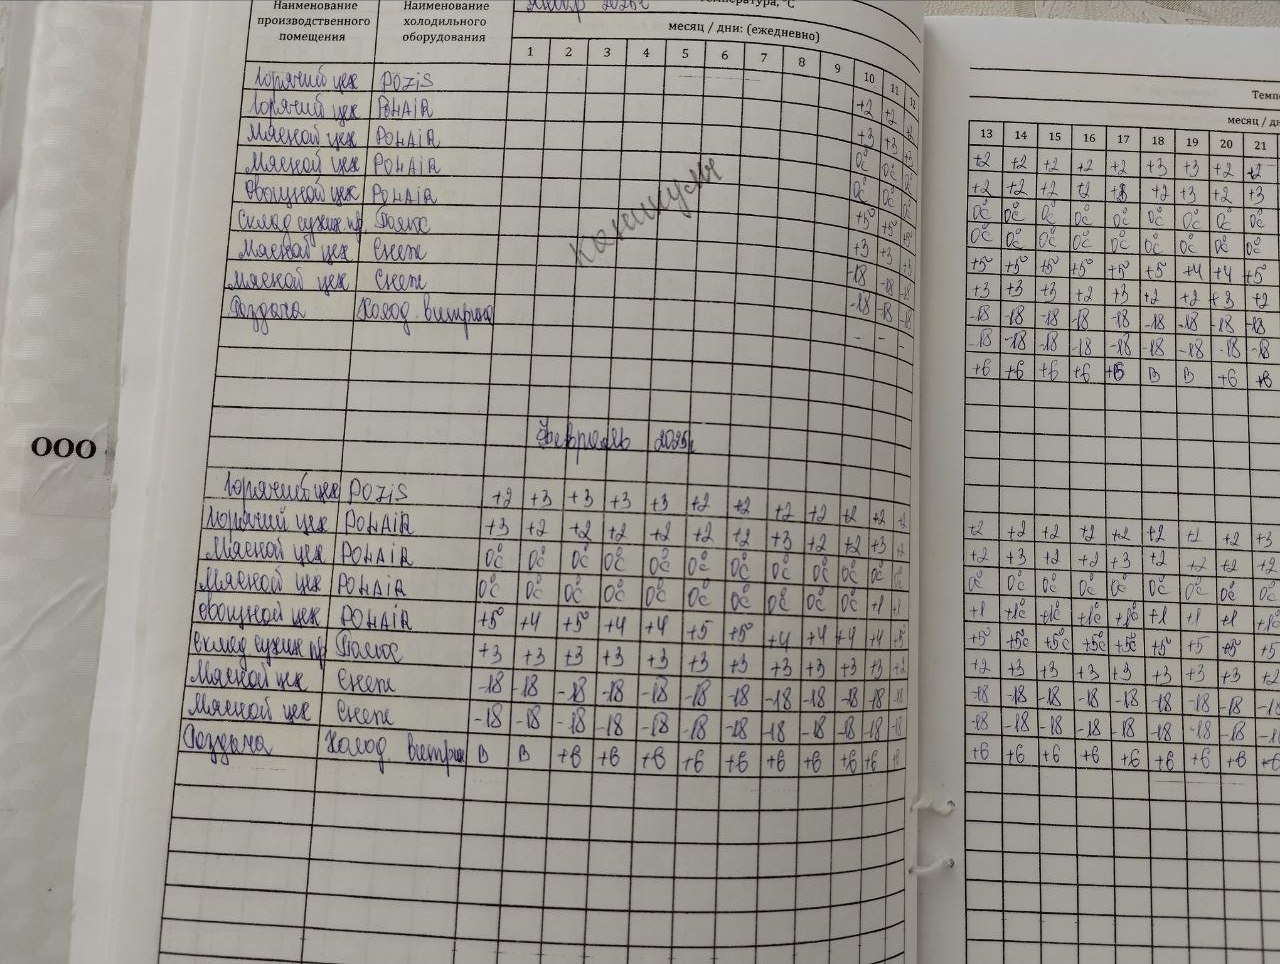 Наименование производственного помещения
Наименование холодильного оборудования
2025г
температура, °С
месяц / дни: (ежедневно)
1 2 3 4 5 6 7 8 9 10 11 12
Горячий цех POZiS +2 +2 +2
Горячий цех POLAiR +3 +3 +3
Мясной цех POLAiR 0°C 0°C 0°C
Мясной цех POLAiR 0°C 0°C 0°C
Овощной цех POLAiR +5° +5° +5°
Склад сухих пр Полюс +3 +3 +3
Мясной цех Снеж -18 -18 -18
Мясной цех Снеж -18 -18 -18
Раздача Холод. витрина - - -
каникулы
Февраль 2025г
Горячий цех POZiS +2 +3 +3 +3 +3 +2 +2 +2 +2 +2 +2 +2
Горячий цех POLAiR +3 +2 +2 +2 +2 +2 +2 +3 +2 +2 +3 +2
Мясной цех POLAiR 0°C 0°C 0°C 0°C 0°C 0°C 0°C 0°C 0°C 0°C 0°C 0°C
Мясной цех POLAiR 0°C 0°C 0°C 0°C 0°C 0°C 0°C 0°C 0°C 0°C +1 +1
Овощной цех POLAiR +5° +4 +5° +4 +4 +5 +5° +4 +4 +4 +4 +5°
Склад сухих пр Полюс +3 +3 +3 +3 +3 +3 +3 +3 +3 +3 +3 +2
Мясной цех Снеж -18 -18 -18 -18 -18 -18 -18 -18 -18 -18 -18 -18
Мясной цех Снеж -18 -18 -18 -18 -18 -18 -18 -18 -18 -18 -18 -18
Раздача Холод витрин В В +6 +6 +6 +6 +6 +6 +6 +6 +6 +6
ООО
Темпе
месяц / дн
13 14 15 16 17 18 19 20 21
+2 +2 +2 +2 +2 +3 +3 +2 +2
+2 +2 +2 +2 +3 +2 +3 +2 +3
0°C 0°C 0°C 0°C 0°C 0°C 0°C 0°C 0°C
0°C 0°C 0°C 0°C 0°C 0°C 0°C 0°C 0°C
+5° +5° +5 +5° +5° +5 +4 +4 +5°
+3 +3 +3 +2 +3 +2 +2 +3 +2
-18 -18 -18 -18 -18 -18 -18 -18 -18
-18 -18 -18 -18 -18 -18 -18 -18 -18
+6 +6 +6 +6 +6 В В +6 +6
+2 +2 +2 +2 +2 +2 +2 +2 +3
+2 +3 +2 +2 +3 +2 +2 +2 +2
0°C 0°C 0°C 0°C 0°C 0°C 0°C 0°C 0°C
+1 +1°C +1°C +1°C +1°C +1 +1 +1 +1°C
+5° +5°C +5°C +5°C +5°C +5° +5 +5° +5
+2 +3 +3 +3 +3 +3 +3 +3 +2
-18 -18 -18 -18 -18 -18 -18 -18 -18
-18 -18 -18 -18 -18 -18 -18 -18 -1
+6 +6 +6 +6 +6 +6 +6 +6 +6